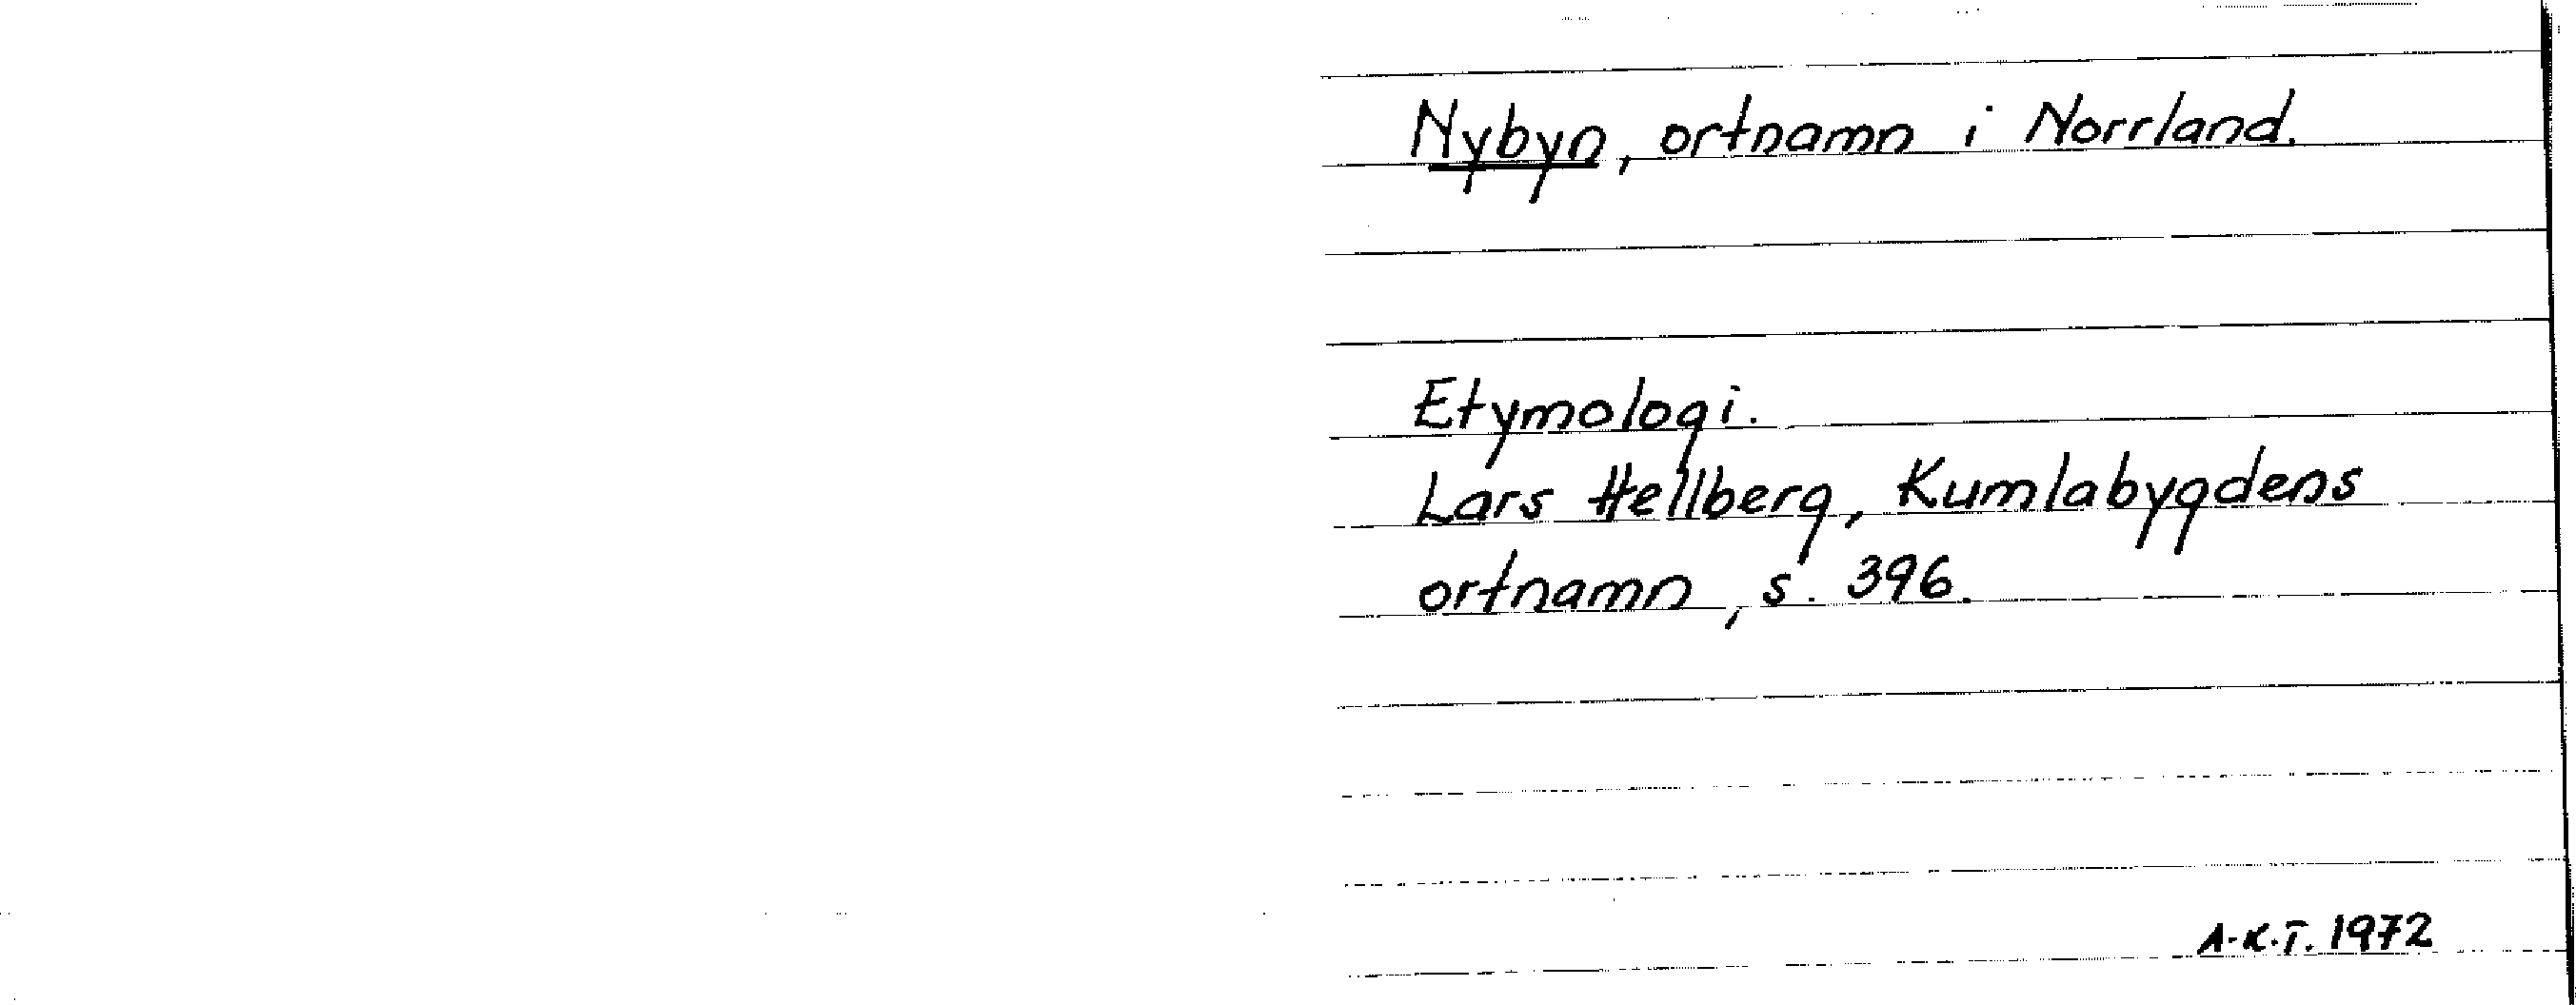 Nybyn, ortnamn i Norrland.
Etymologi.
Lars Hellberg, Kumlabygdens
ortnamn, s. 396.
A-K.T. 1972